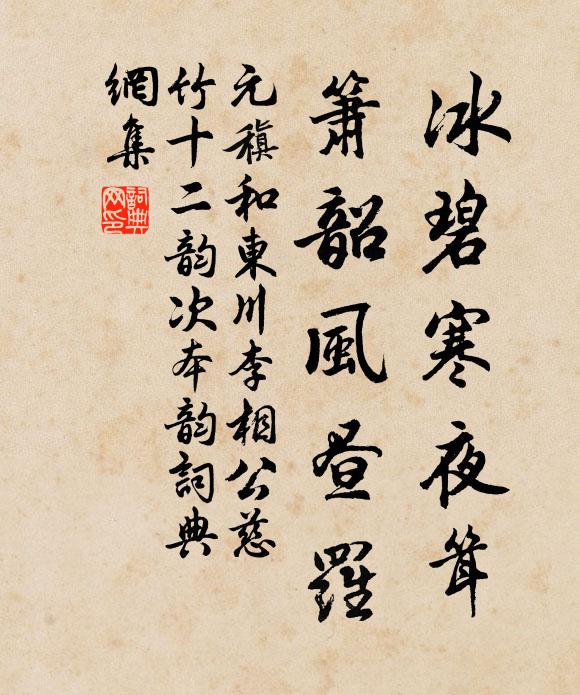 冰碧寒夜耸
箫韶风昼罗
元稹和東川李相公慈
竹十二韵次本韵詞典
網集
詞典網印